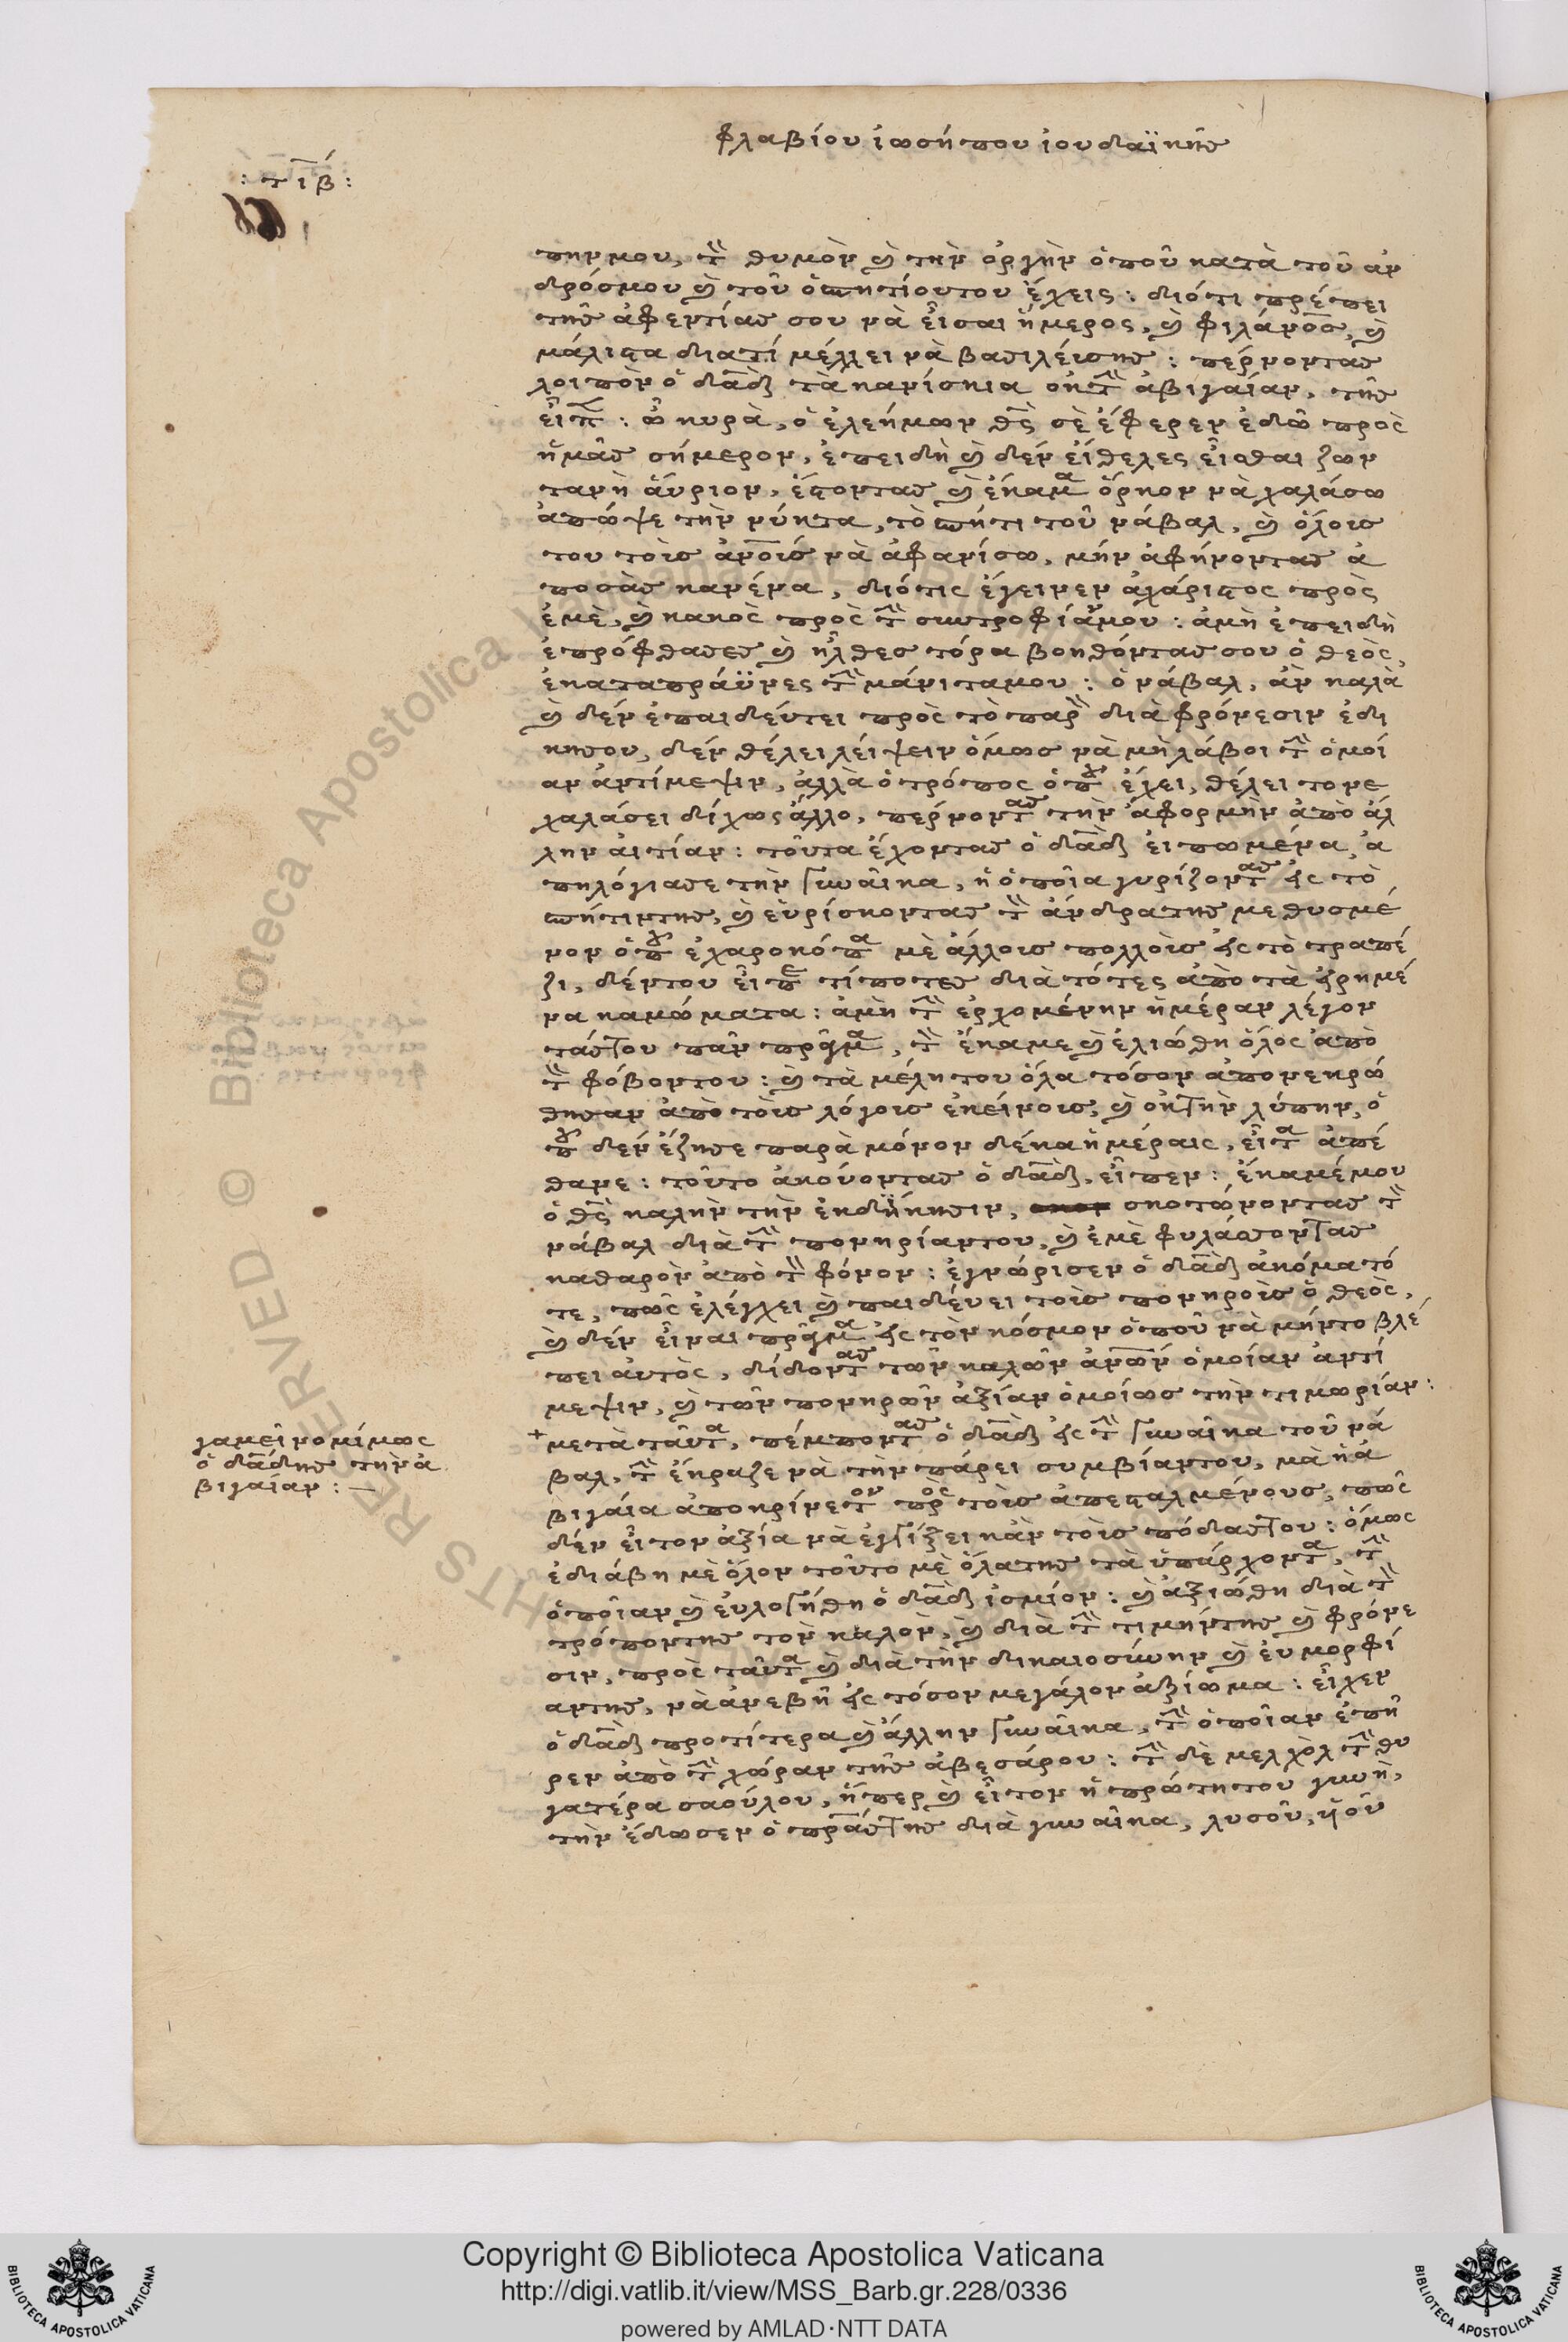 φλαβίου ἰωσήπου ἰουδαϊκῆς
: τιβ :
πην μου, τὸν θυμὸν καὶ τὴν ὀργὴν ὁποῦ κατὰ τοῦ ἀν
δρόσμου καὶ τοῦ ὁσπητίουτου ἔχεις : διότι πρέπει
τῆς ἀφεντίας σου νὰ εἶσαι ἥμερος, καὶ φιλάνος, καὶ
μάλιστα διατί μέλλει νὰ βασιλεύσης : πέρνοντας
λοιπὸν ὁ δαδ τὰ κανίσκια ἐκ τὴν ἀβιγαίαν, τῆς
εἶπεν : ὦ κυρὰ, ὁ ἐλεήμων θς σὲ ἔφερεν ἐδῶ πρὸς
ἡμᾶς σήμερον, ἐπειδὴ καὶ δὲν εἴθελες εἶσθαι ζων
τανὴ ἄυριον, ἔστοντας καὶ ἔκαμα ὅρκον νὰ χαλάσω
ἀπόψε τὴν νύκτα, τὸ σπήτι τοῦ νάβαλ, καὶ ὅλοις
του τοὶς ἀνοις νὰ ἀφανίσω, μὴν ἀφήνοντας ἀ
ποσᾶς κανένα, διότις ἔγεινεν ἀχάριστος πρὸς
ἐμὲ, καὶ κακὸς πρὸς τὴν συντροφίαν μου : ἀμὴ ἐπειδὴ
ἐπρόφθασες καὶ ἦλθες τόρα βοηθόντας σου ὁ θεὸς,
ἐκαταπράϋνες τὴν μάνιταμου : ὁ νάβαλ, ἂν καλὰ
καὶ δὲν ἐπαιδέυτει πρὸς τὸ παρὸν διὰ φρόνεσιν ἐδι
κήσου, δὲν θέλει λείψειν ὅμως νὰ μὴ λάβοι τὴν ὁμοί
αν ἀντίμεψιν, ἀλλὰ ὁ τρόπος ὁποῦ ἔχει, θέλει τονε
χαλάσει δίχως ἄλλο, πέρνοντας τὴν ἀφορμὴν ἀπὸ ἄλ
λην ἀιτίαν : τοῦτα ἔχοντας ὁ δαδ εἰπωμένα, ἀ
πηλόγιασε τὴν γυναῖκα, ἡ ὁποῖα γυρίζοντας εἰς τὸ
σπήτιντης, καὶ εὑρίσκοντας τὸν ἄνδρατης μεθυσμέ
νον ὁποῦ ἐχαροκόπα μὲ ἄλλοις πολλοὶς εἰς τὸ τραπέ
ζι, δέντου εἶπε τίποτες διὰ τότες ἀπὸ τὰ εἰρημέ
να καμώματα : ἀμὴ τὴν ἐρχομένην ἡμέραν λέγον
τάστου πᾶν πρᾶγμα, τὸν ἔκαμε καὶ ἐλιώθη ὅλος ἀπὸ
τὸν φόβοντου : καὶ τὰ μέλη του ὅλα τόσον ἀπονεκρώ
θησαν ἀπὸ τοὶς λόγοις ἐκείνοις, καὶ ἐκ τὴν λύπην, ὁ
ποῦ δὲν ἔζησε παρὰ μόνον δέκα ἡμέραις, εἶτα ἀπέ
θανε : τοῦτο ἀκούοντας ὁ δαδ, εἶπεν : ἔκαμέ μου
ὁ θς καλὴν τὴν ἐκδήκησιν, σκοτώνοντας τὸν
νάβαλ διὰ τὴν πονηρίαντου, καὶ ἐμὲ φυλάσσοντας
καθαρὸν ἀπὸ τὸν φόνον : ἐγνώρισεν ὁ δαδ ἀκόμα τό
τε, πῶς ἐλέγχει καὶ παιδεύει τοὶς πονηροὶς ὁ θεὸς,
καὶ δὲν εἶναι πρᾶγμα εἰς τὸν κόσμον ὁποῦ νὰ μήντο βλέ
πει ἀυτὸς, δίδοντας τῶν καλῶν ἀνων ὁμοίαν ἀντί
μεψιν, καὶ τῶν πονηρῶν ἀξίαν ὁμοίως τὴν τιμωρίαν :
+ μετὰ ταῦτα, πέμποντας ὁ δαδ εἰς τὴν γυναῖκα τοῦ νά
βαλ, τὴν ἔκραζε νὰ τὴν πάρει συμβίαντου, μὰ ἡ ἀ
βιγαία ἀποκρίνετον πρὸς τοὶς ἀπεσταλμένους, πῶς
δὲν εἶτον ἀξία νὰ ἐγγίξει κἂν τοὶς πόδαστου : ὅμως
ἐδιάβη μὲ ὅλον τοῦτο μὲ ὅλατης τὰ ὑπάρχοντα, τὴν
ὁποῖαν καὶ ἐυλογήθη ὁ δαδ ἰσμίον : καὶ ἀξιώθη διὰ τὸν
τρόποντης τὸν καλὸν, καὶ διὰ τὴν τιμήντης καὶ φρόνε
σιν, πρὸς ταῦτα καὶ διὰ τὴν δικαιοσύνην καὶ ἐυμορφί
αντης, νὰ ἀνεβῆ εἰς τόσον μεγάλον ἀξίωμα : εἶχεν
ὁ δαδ προτίτερα καὶ ἄλλην γυναῖκα, τὴν ὁποῖαν ἐπῆ
ρεν ἀπὸ τὴν χώραν τῆς ἀβεσάρου : τὴν δὲ μελχὸλ τὴν θυ
γατέρα σαούλου, ἥπερ καὶ εἶτον ἡ πρώτητου γυνὴ,
τὴν ἔδωσεν ὁ πράστης διὰ γυναῖκα, λυσοῦ, υἱοῦ
γαμεῖ νομίμως
ὁ δάδης τὴν ἀ
βιγαίαν : —
Copyright © Biblioteca Apostolica Vaticana
http://digi.vatlib.it/view/MSS_Barb.gr.228/0336
powered by AMLAD·NTT DATA